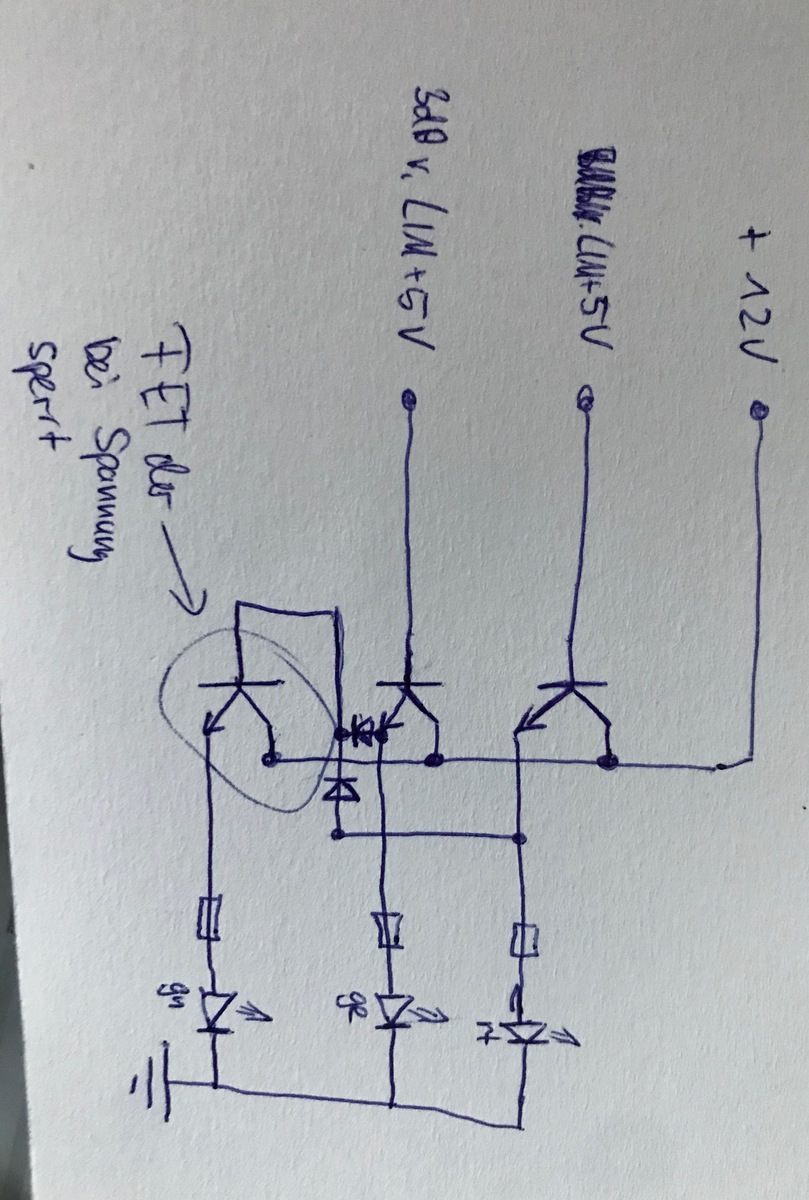 + 12V
Lim+5V
3dB v. Lim +5V
FET der
bei Spannung
sperrt
rt
ge
gn